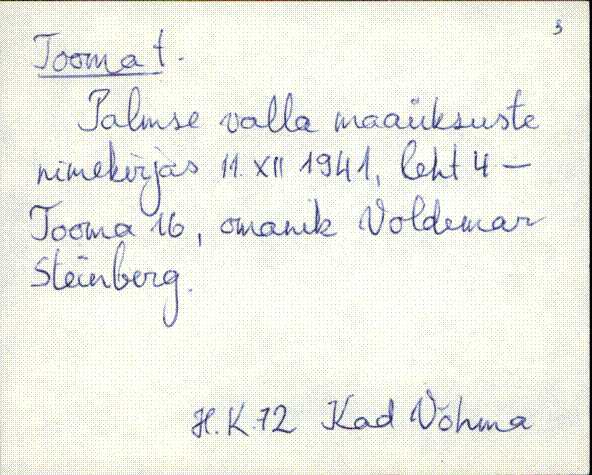 3
Tooma t.
Palmse valla maaüksuste
nimekirjas 11. XII 1941, leht 4 –
Tooma 16, omanik Voldemar
Steinberg.
H. K. 72 Kad Võhma